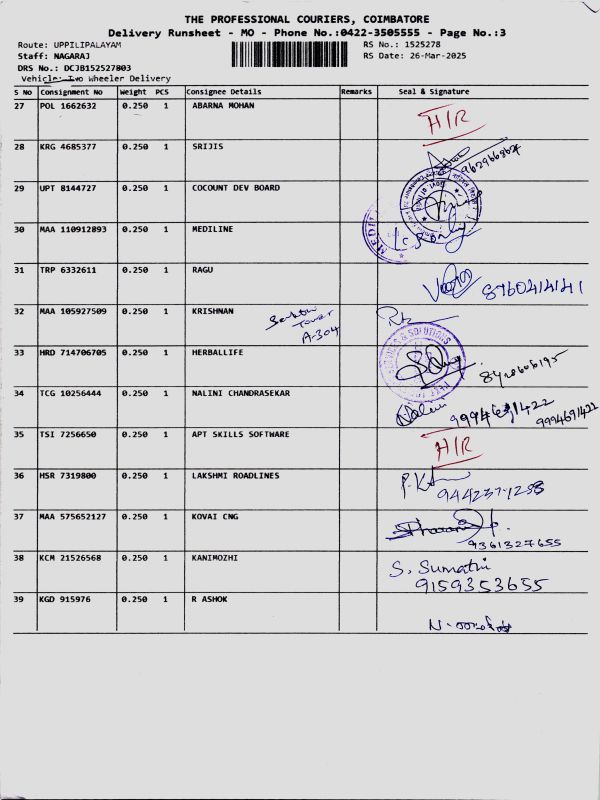 THE PROFESSIONAL COURIERS, COIMBATORE
Delivery Runsheet - MO - Phone No.:0422-3505555 - Page No.:3
Route: UPPILIPALAYAM RS No.: 1525278
Staff: NAGARAJ RS Date: 26-Mar-2025
DRS No.: DCJB152527803
Vehicle: Two Wheeler Delivery
S No Consignment No Weight PCS Consignee Details Remarks Seal & Signature
27 POL 1662632 0.250 1 ABARNA MOHAN
H/R
28 KRG 4685377 0.250 1 SRIJIS
29 UPT 8144727 0.250 1 COCOUNT DEV BOARD
30 MAA 110912893 0.250 1 MEDILINE
31 TRP 6332611 0.250 1 RAGU
8760414141
32 MAA 105927509 0.250 1 KRISHNAN
Tower
A-304
33 HRD 714706705 0.250 1 HERBALLIFE
34 TCG 10256444 0.250 1 NALINI CHANDRASEKAR
Nalini 9994691422
9994691422
35 TSI 7256650 0.250 1 APT SKILLS SOFTWARE
H/R
36 HSR 7319800 0.250 1 LAKSHMI ROADLINES
37 MAA 575652127 0.250 1 KOVAI CNG
9361327655
38 KCM 21526568 0.250 1 KANIMOZHI
S. Sumathi
9159353655
39 KGD 915976 0.250 1 R ASHOK